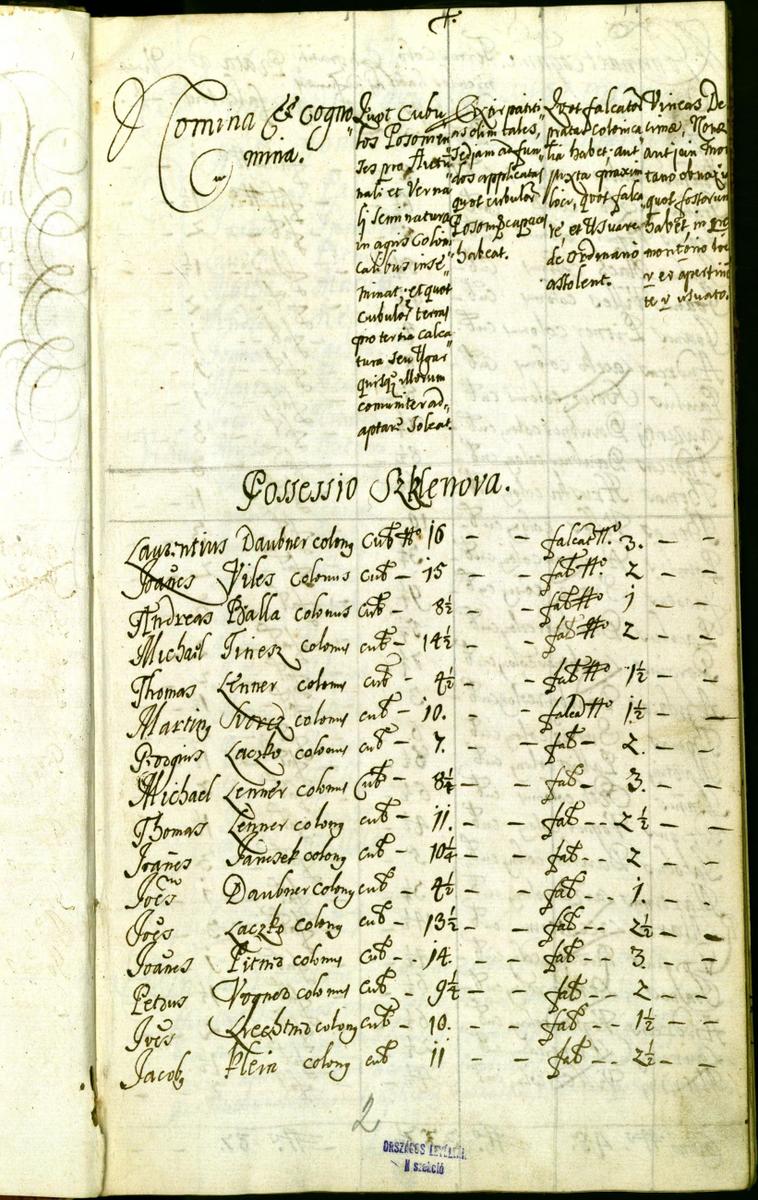 Nomina et Cogno
mina.
Quot Cubu
los Posonien
ses pro Autu
nali et Verna
li seminatura
in agris Colon
calibus inse
minat, et quot
cubulor terras
pro tertia calca
tura seu Ugar
quisq illorum
comuniter ad
aptare Soleat.
Exirpatiti
as olim tales,
sed jam ad fun
dos applicatas
quot cubulor
Poson capaces
habeat.
Quot falcator
prata colonica
lia habet, aut
juxta praxim
loci, quot falca
re et Usuare
de Ordinario
assolent.
Vineas De
cimae, Nonae
aut jam mon
tano obnoxi
quot fossorum
habet in pro
montorio loc
Possessio Szklenova.
Laurentius Daubner colong Cub No 16 - - falcat No 3. - -
Joanes Viles Colonus cub - 15 - - falc No. 2 - -
Andreas Balla colonus cub - 8½ - - falc No 1 - -
Michael Tinesz colonus cub - 14½ - - falc No 2 - -
Thomas Lenner colonus cub - 4½ - - falc No 1½ - -
Marting colonus cub - 10. - - falca No 1½ - -
Laczko colonus cub - 7. - - falc - 2. - -
Michael Lenner colonus Cub - 8¼ - - falc - 3. - -
Thomas Lenner colong cub - 11. - - falc - - 2½ - -
Joanes Jancsek colong cub - 10¼ - - falc - - 2 - -
Joes Daubner colong cub - 4½ - - falc - - 1. - -
Joes Laczko colong cub - 13½ - - falc - - 2½ - -
Joanes Pitnr colonus cub - - 14. - - falc - - 3. - -
Petrus Vogner colonus cub - 9¼ - - falc - - 2 - -
Joes colong cub - 10. - - falc - - 1½ - -
Jacob Klein colong cub - 11 - - falc - - 2½ - -
2
ORSZÁGOS LEVÉLTÁR
II szekció